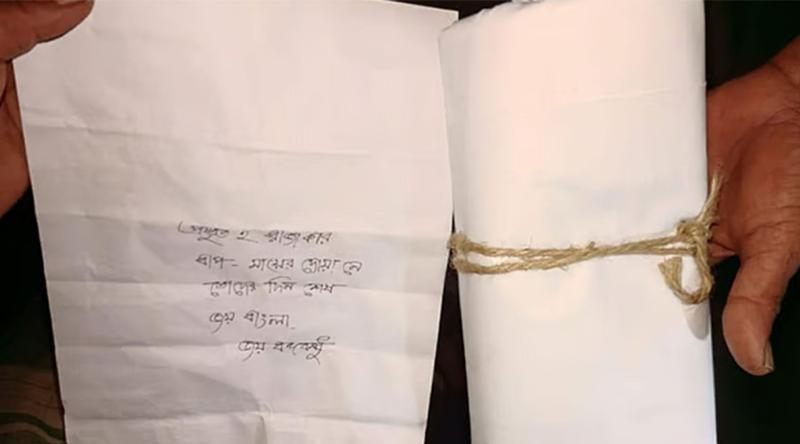 প্রস্তুত হ রাজাকার
বাপ - মায়ের দোয়া নে
তোদের দিন শেষ
জয় বাংলা.
জয় বঙ্গবন্ধু